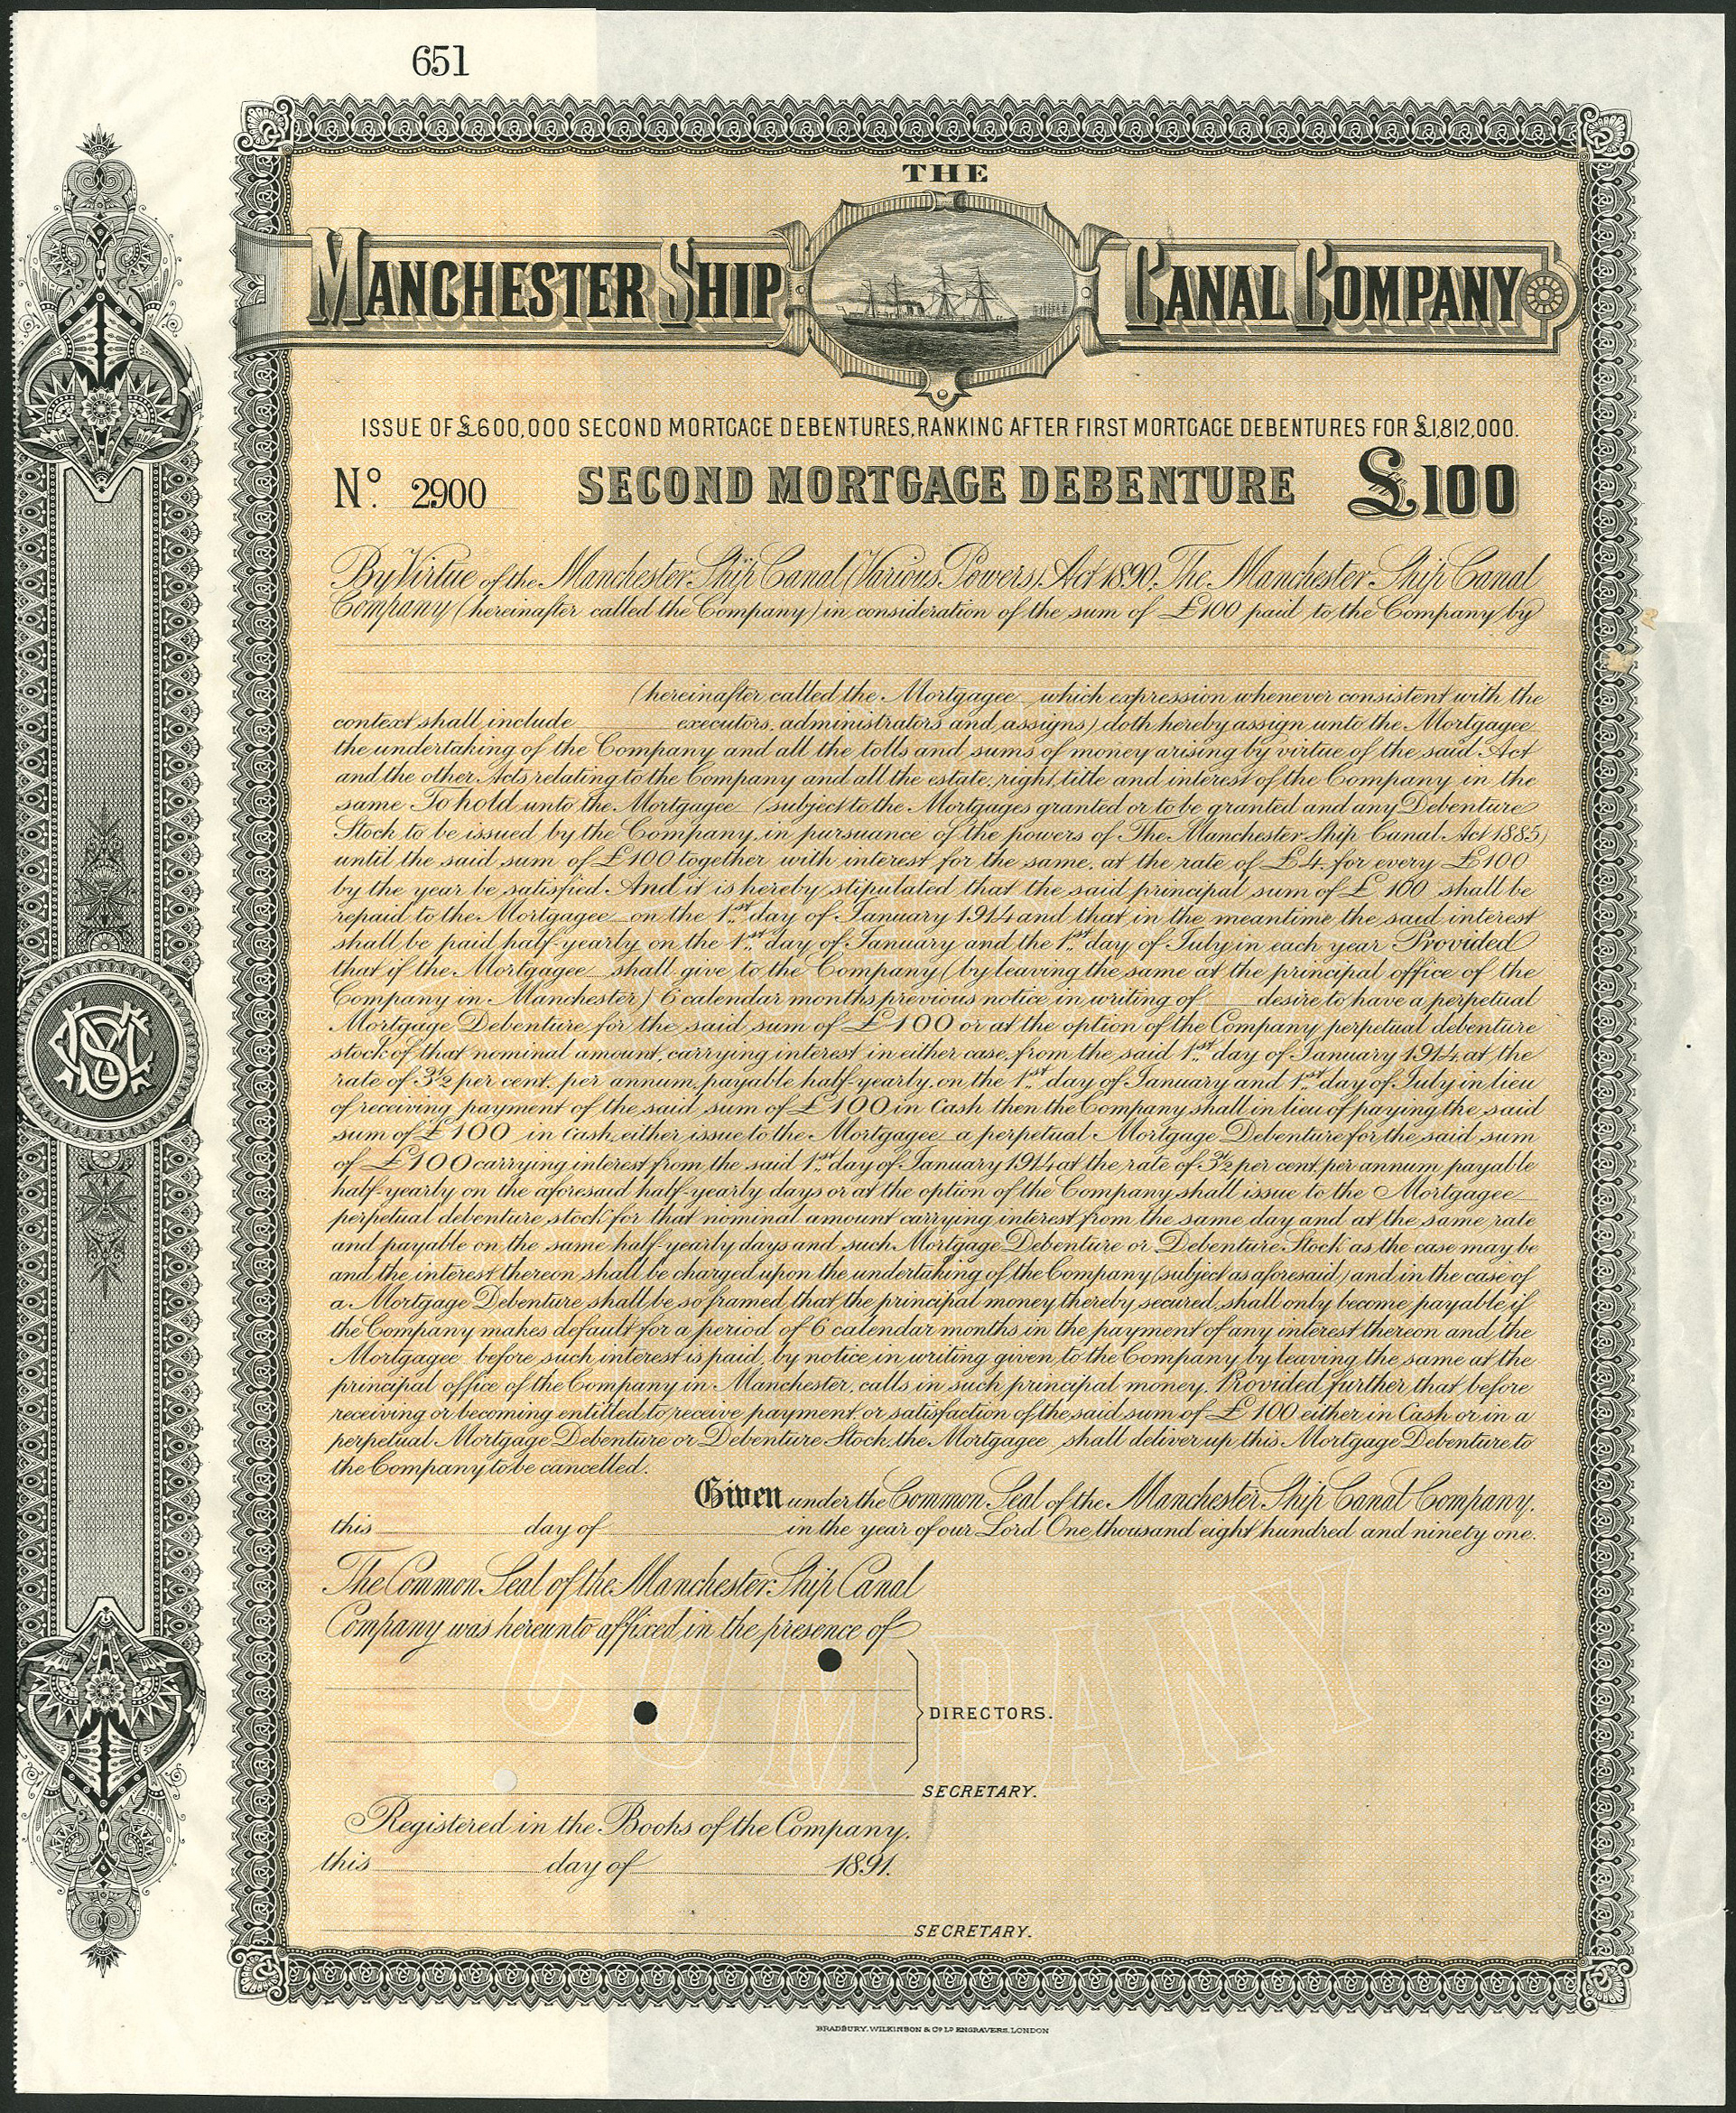 651
THE
MANCHESTER SHIP CANAL COMPANY
ISSUE OF £600,000 SECOND MORTGAGE DEBENTURES, RANKING AFTER FIRST MORTGAGE DEBENTURES FOR £1,812,000.
No. 2900 SECOND MORTGAGE DEBENTURE £100
By Virtue of the Manchester Ship Canal (Various Powers) Act 1890. The Manchester Ship Canal
Company (hereinafter called the Company) in consideration of the sum of £100 paid to the Company by
(hereinafter called the Mortgagee which expression whenever consistent with the
context shall include executors, administrators and assigns) doth hereby assign unto the Mortgagee
the undertaking of the Company and all the tolls and sums of money arising by virtue of the said Act
and the other Acts relating to the Company and all the estate, right, title and interest of the Company in the
same To hold unto the Mortgagee (subject to the Mortgages granted or to be granted and any Debenture
Stock to be issued by the Company in pursuance of the powers of The Manchester Ship Canal Act 1885)
until the said sum of £100 together with interest for the same, at the rate of £4 for every £100
by the year be satisfied And it is hereby stipulated that the said principal sum of £100 shall be
repaid to the Mortgagee on the 1st day of January 1914 and that in the meantime the said interest
shall be paid half-yearly on the 1st day of January and the 1st day of July in each year Provided
that if the Mortgagee shall give to the Company (by leaving the same at the principal office of the
Company in Manchester) 6 calendar months previous notice in writing of desire to have a perpetual
Mortgage Debenture for the said sum of £100 or at the option of the Company perpetual debenture
stock of that nominal amount, carrying interest in either case, from the said 1st day of January 1914, at the
rate of 3½ per cent. per annum, payable half-yearly, on the 1st day of January and 1st day of July in lieu
of receiving payment of the said sum of £100 in Cash then the Company shall in lieu of paying the said
sum of £100 in Cash, either issue to the Mortgagee a perpetual Mortgage Debenture for the said sum
of £100 carrying interest from the said 1st day of January 1914 at the rate of 3½ per cent. per annum payable
half-yearly on the aforesaid half-yearly days or at the option of the Company shall issue to the Mortgagee
perpetual debenture stock for that nominal amount carrying interest from the same day and at the same rate
and payable on the same half-yearly days and such Mortgage Debenture or Debenture Stock as the case may be
and the interest thereon shall be charged upon the undertaking of the Company (subject as aforesaid) and in the case of
a Mortgage Debenture shall be so framed that the principal money thereby secured, shall only become payable if
the Company makes default for a period of 6 calendar months in the payment of any interest thereon and the
Mortgagee before such interest is paid, by notice in writing given to the Company by leaving the same at the
principal office of the Company in Manchester, calls in such principal money. Provided further that before
receiving or becoming entitled to receive payment or satisfaction of the said sum of £100 either in Cash or in a
perpetual Mortgage Debenture or Debenture Stock, the Mortgagee shall deliver up this Mortgage Debenture to
the Company to be cancelled.
Given under the Common Seal of the Manchester Ship Canal Company.
this day of in the year of our Lord One thousand eight hundred and ninety one.
The Common Seal of the Manchester Ship Canal
Company was hereunto affixed in the presence of
DIRECTORS.
COMPANY
SECRETARY.
Registered in the Books of the Company,
this day of 1891.
SECRETARY.
BRADBURY, WILKINSON & Co. Ld. ENGRAVERS, LONDON